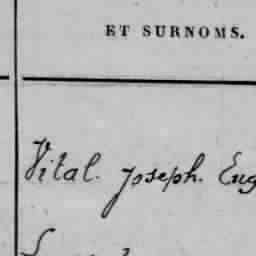 ET SURNOMS.
Vital. Joseph. Eug